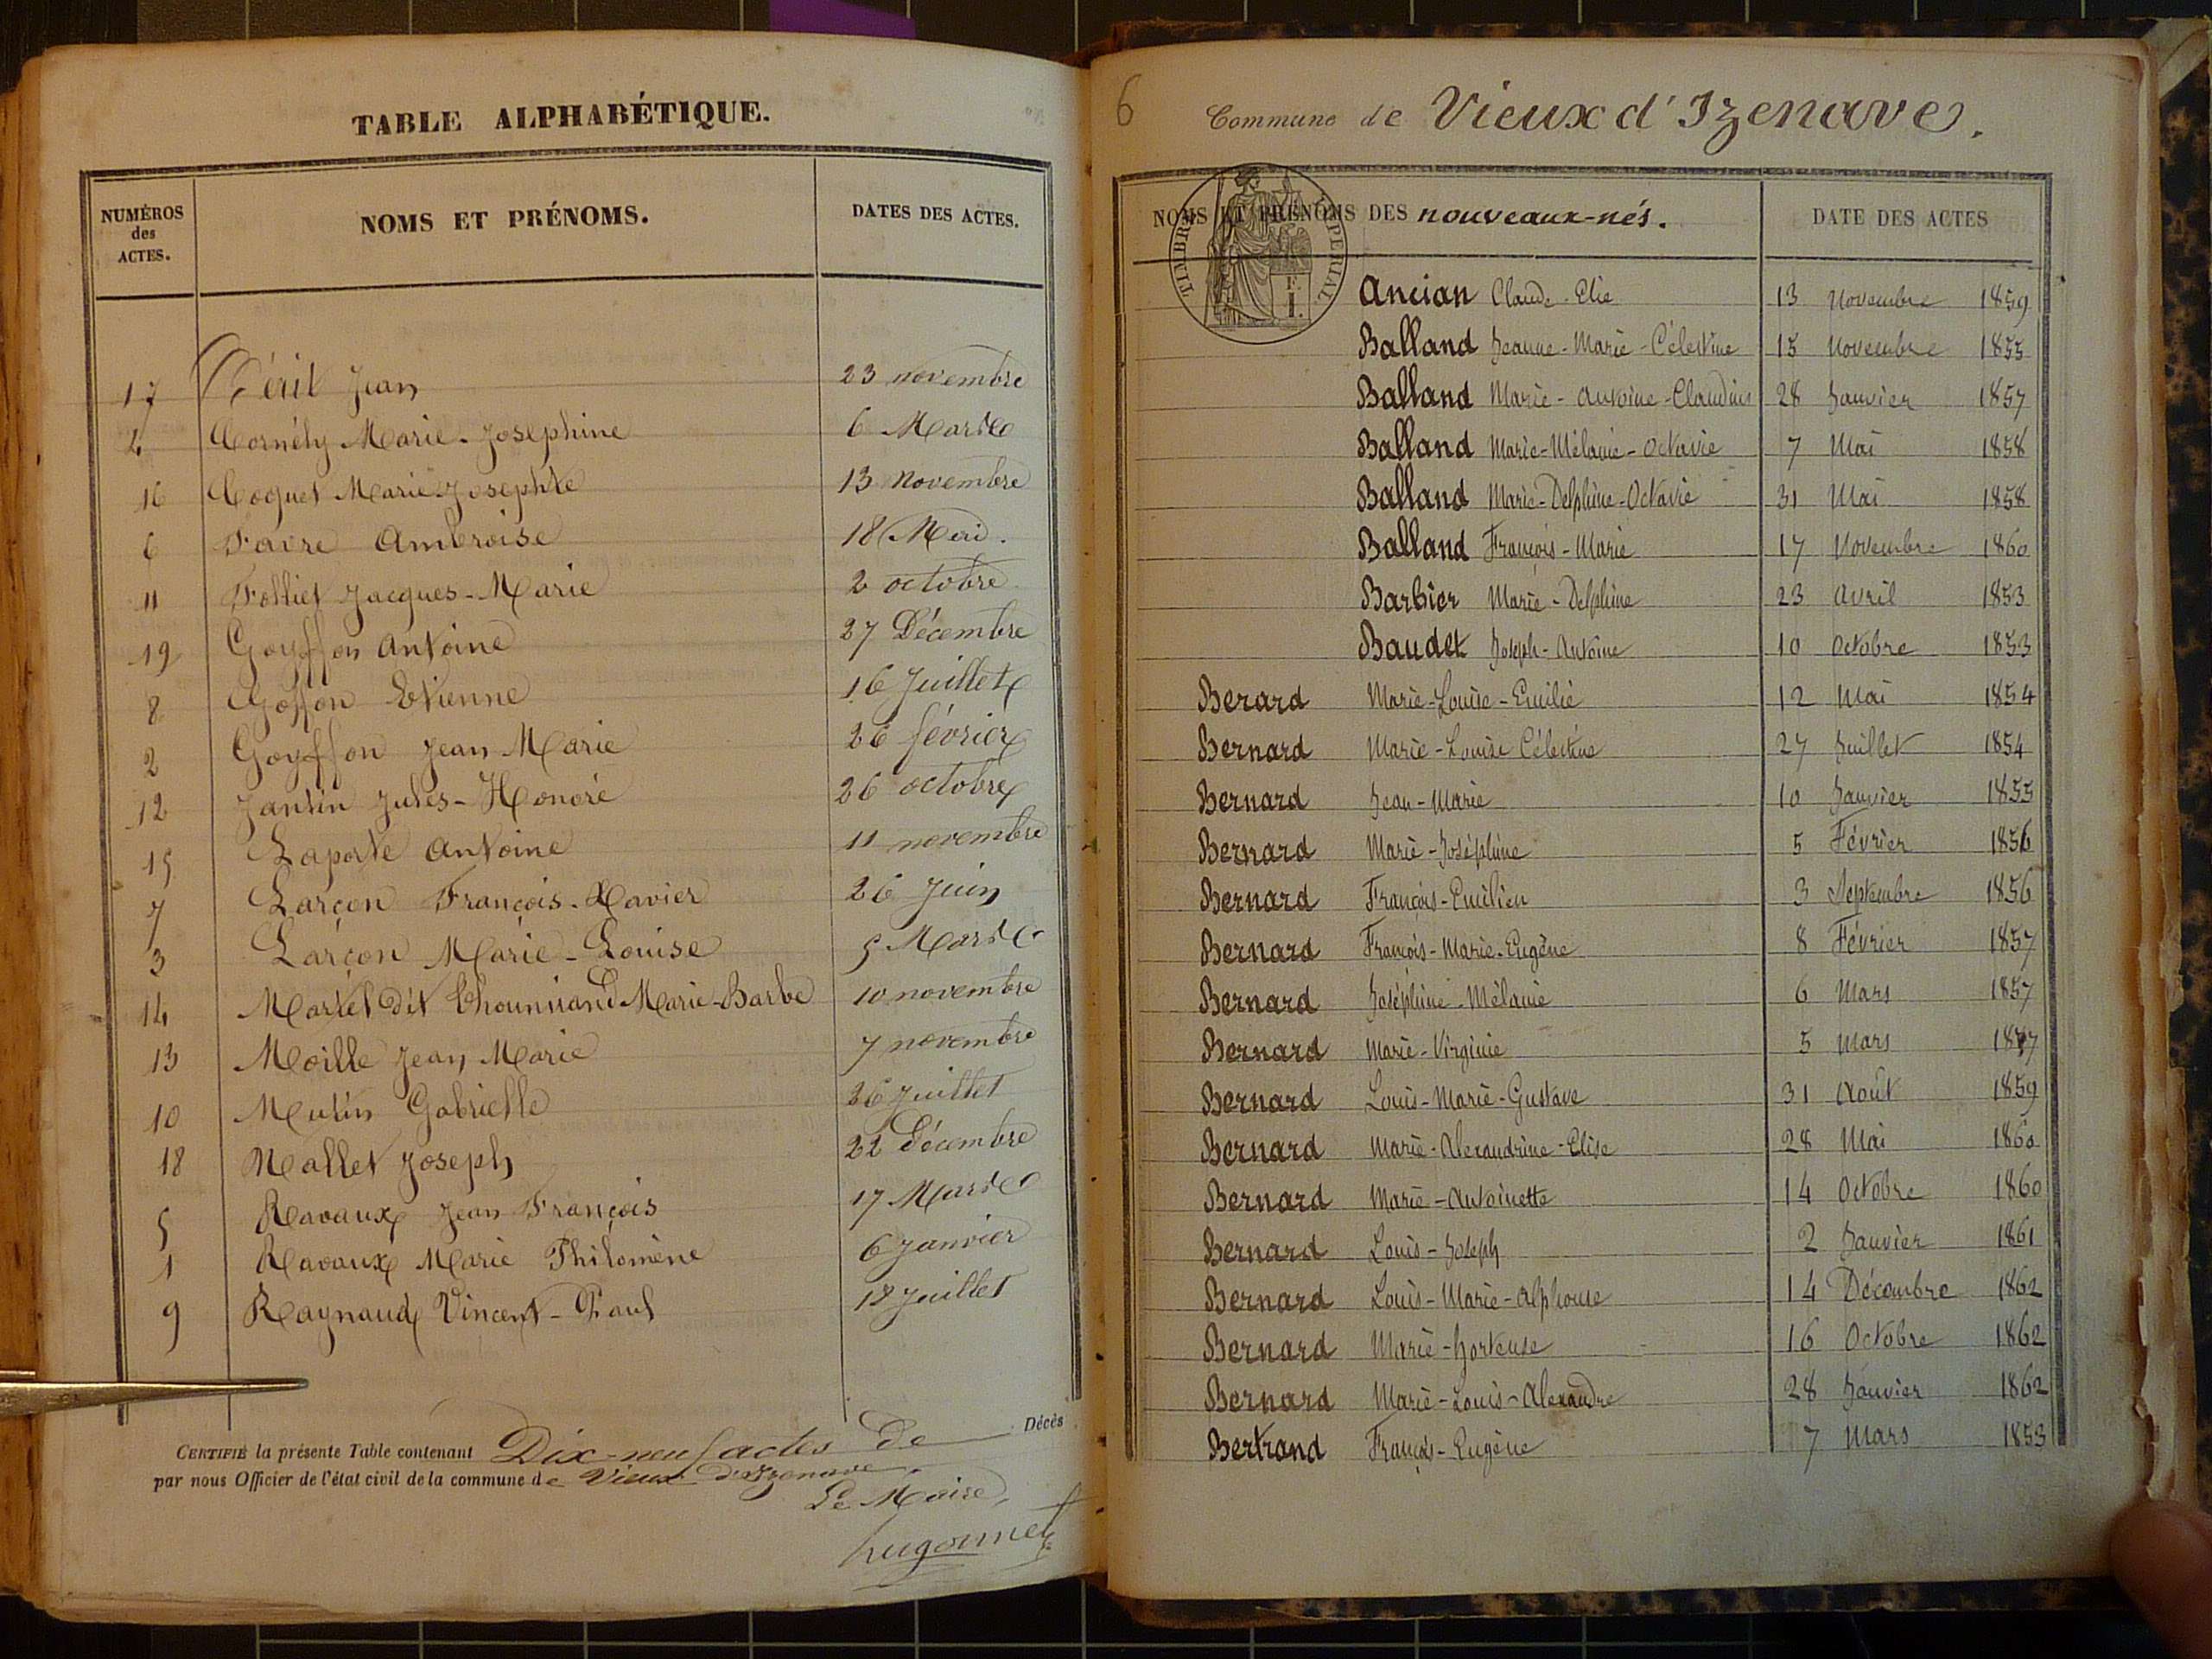 TABLE ALPHABÉTIQUE.
NUMÉROS des ACTES. NOMS ET PRÉNOMS. DATES DES ACTES.
17 Jean 23 novembre
4 Cornély Marie-Josephine 6 Mars
16 Coquet Marie Josephte 13 novembre
6 Favre Ambroise 18 Mai.
11 Folliet Jacques-Marie 2 octobre
19 Goyffon Antoine 27 Décembre
8 Goffon Etienne 16 Juillet
2 Goyffon Jean Marie 26 février
12 Jantin Jules-Honoré 26 octobre
15 Laporte Antoine 11 novembre
7 Larçon François-Xavier 26 Juin
3 Larçon Marie-Louise 5 Mars
14 Martel dit Marie-Barbe 10 novembre
13 Moille Jean Marie 7 novembre
10 Mutin Gabrielle 26 Juillet
18 Nallet Joseph 22 Décembre
5 Ravaux Jean François 17 Mars
1 Ravaux Marie Philomène 6 Janvier
9 Raynaud Vincent-Paul 18 Juillet
CERTIFIÉ la présente Table contenant Dix-neuf actes de Décès
par nous Officier de l'état civil de la commune de Vieux d'Izenave.
Le Maire,
hugonnet
6 Commune de Vieux d'Izenave.
TIMBRE IMPERIAL
F. 1.
NOMS ET PRÉNOMS DES nouveaux-nés. DATE DES ACTES
Ancian Claude-Elie 13 novembre 1859
Balland Jeanne-Marie-Célestine 15 novembre 1855
Balland Marie-Antoine-Claudius 28 Janvier 1857
Balland Marie-Mélanie-Octavie 7 Mai 1858
Balland Marie-Delphine-Octavie 31 Mai 1858
Balland François-Marie 17 Novembre 1860
Barbier Marie-Delphine 23 Avril 1853
Baudet Joseph-Antoine 10 Octobre 1853
Berard Marie-Louise-Emilie 12 Mai 1854
Bernard Marie-Louise Célestine 27 Juillet 1854
Bernard Jean-Marie 10 Janvier 1855
Bernard Marie-Joséphine 5 Février 1856
Bernard François-Emilien 3 Septembre 1856
Bernard François-Marie-Eugène 8 Février 1857
Bernard Joséphine-Mélanie 6 Mars 1857
Bernard Marie-Virginie 5 Mars
Bernard Louis-Marie-Gustave 31 Août 1859
Bernard Marie-Alexandrine-Elise 28 Mai 1860
Bernard Marie-Antoinette 14 Octobre 1860
Bernard Louis-Joseph 2 Janvier 1861
Bernard Louis-Marie-Alphonse 14 Décembre 1862
Bernard Marie-hortense 16 Octobre 1862
Bernard Marie-Louis-Alexandre 28 Janvier 1862
Bertrand François-Eugène 7 Mars 1853